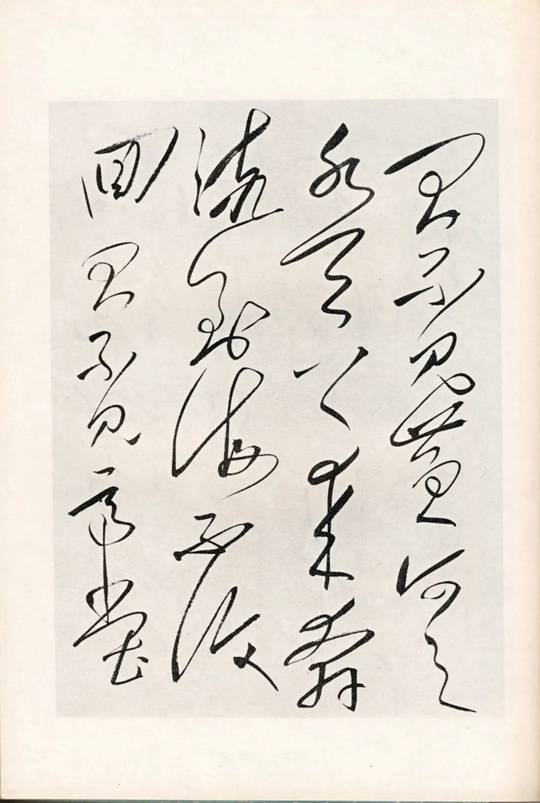 君不见黄河之
水天上来奔
流到海不复
回君不见高堂